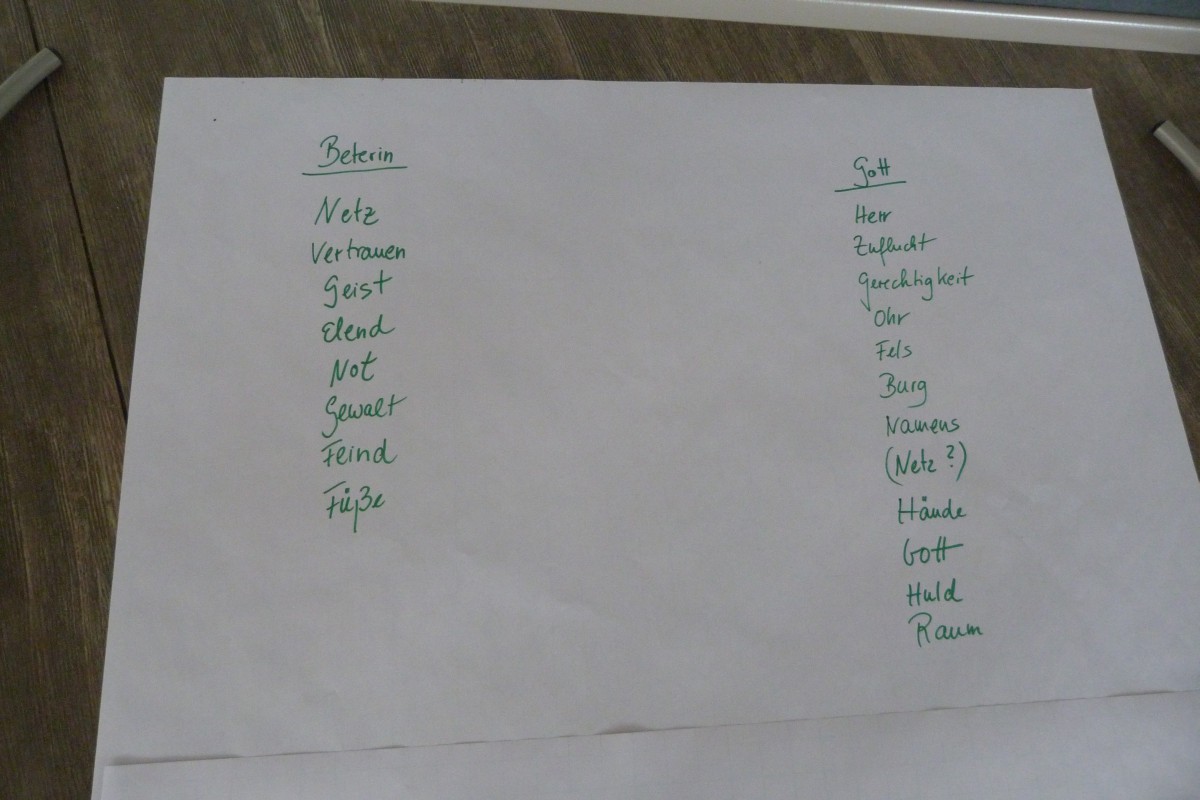 Beterin
Netz
Vertrauen
Geist
Elend
Not
Gewalt
Feind
Füße
Gott
Herr
Zuflucht
Gerechtigkeit
Ohr
Fels
Burg
Namens
(Netz?)
Hände
Gott
Huld
Raum